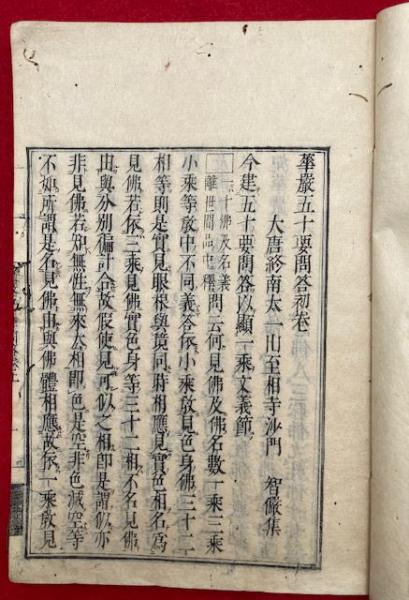 華嚴五十要問答初卷
大唐終南太一山至相寺沙門　智儼集
今建五十要問答以顯一乘文義節
一十佛及名義
離世間品中釋
問云何見佛及佛名數一乘三乘
小乘等教中不同義答依小乘教見色身佛三十二
相等則是實見眼根與境同時相應見實色相名為
見佛若依三乘見佛實色身等三十二相不名見佛
由與分別徧計合故假使見可似之相即是謂似亦
非見佛若知無性無來去相即色是空非色滅空等
不如所謂是名見佛由與佛體相應故依一乘教見